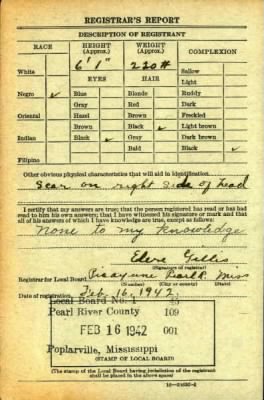 REGISTRAR'S REPORT
DESCRIPTION OF REGISTRANT
RACE HEIGHT (Approx.) WEIGHT (Approx.) COMPLEXION
6' 1" 220#
White EYES HAIR Sallow
Light
Negro ✓ Blue Blonde Ruddy
Gray Red Dark
Oriental Hazel Brown Freckled
Brown Black ✓ Light brown
Indian Black ✓ Gray Dark brown
Bald Black ✓
Filipino
Other obvious physical characteristics that will aid in identification
Scar on right side of head
I certify that my answers are true; that the person registered has read or has had
read to him his own answers; that I have witnessed his signature or mark and that
all of his answers of which I have knowledge are true, except as follows:
None to my knowledge
Gillis
(Signature of registrar)
Registrar for Local Board Picayune Pearl R. Miss
(Number) (City or county) (State)
Date of registration Feb. 16, 1942
Local Board No. 1 45
Pearl River County 109
FEB 16 1942 001
Poplarville, Mississippi
(STAMP OF LOCAL BOARD)
(The stamp of the Local Board having jurisdiction of the registrant
shall be placed in the above space)